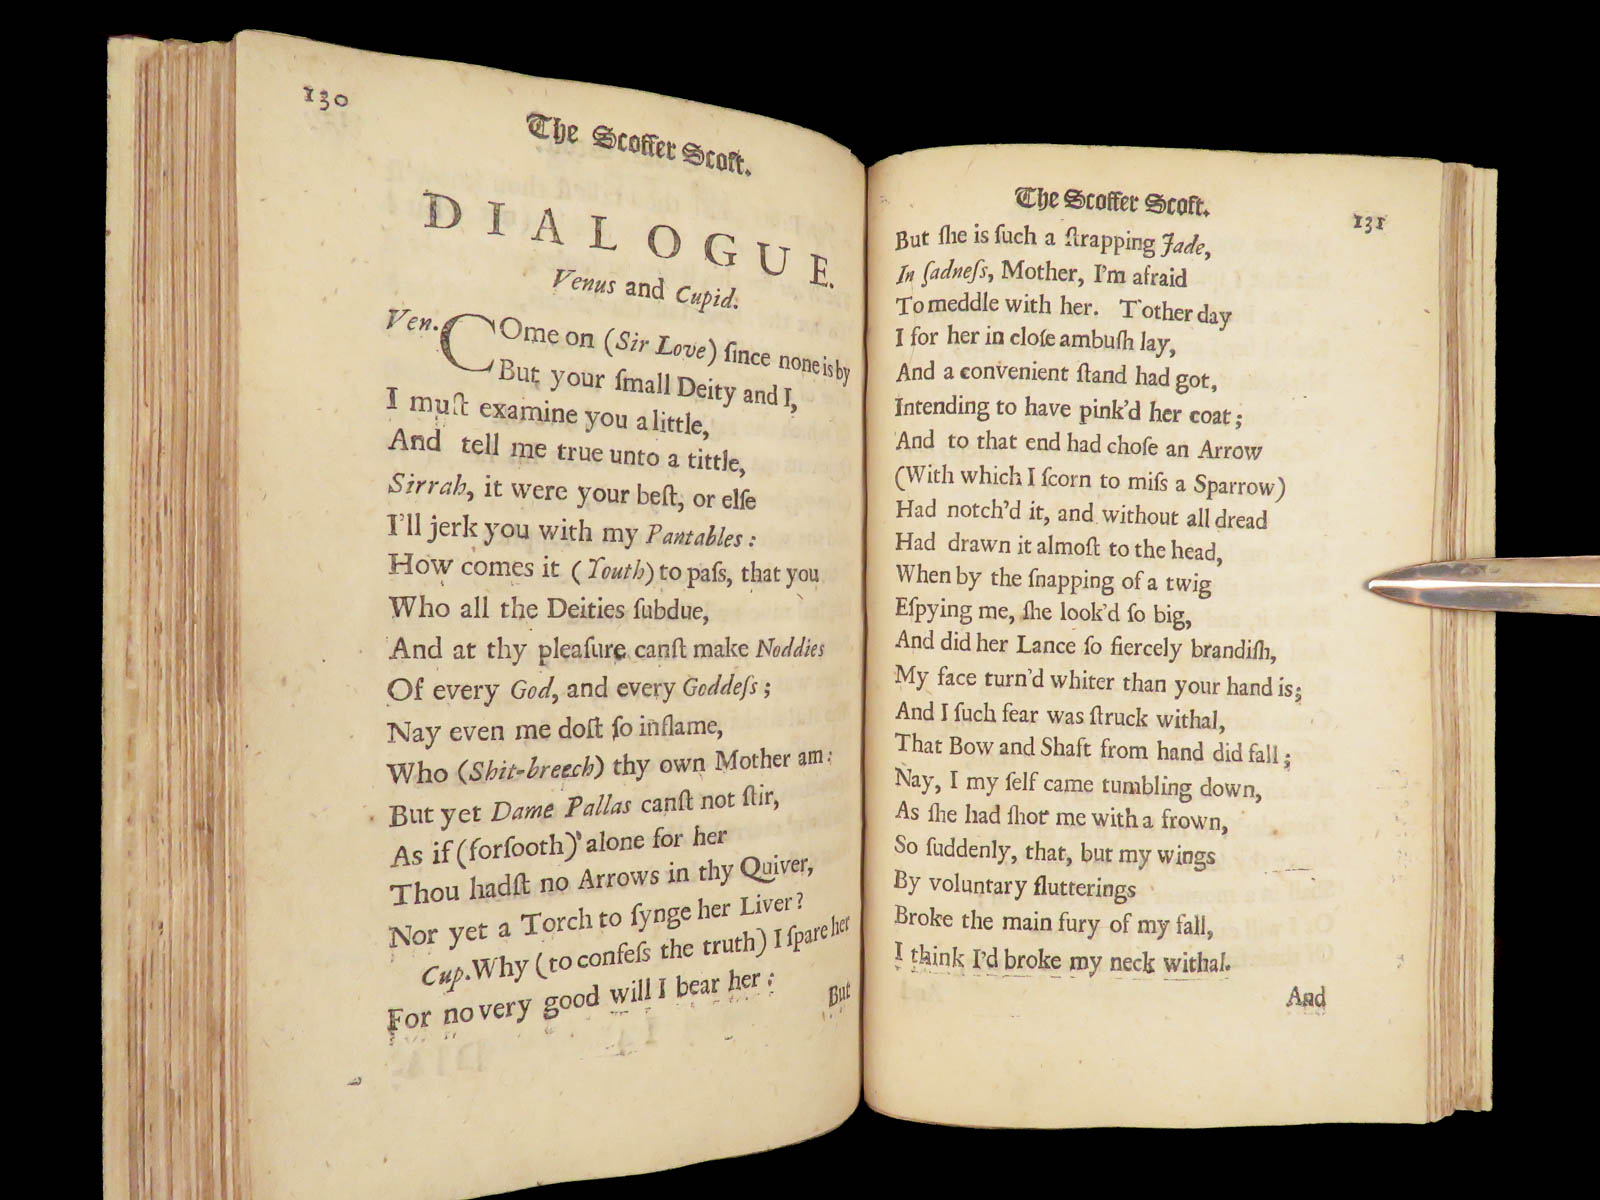 130
The Scoffer Scoft.
DIALOGUE.
Venus and Cupid.
Ven. COme on (Sir Love) ſince none is by
But your ſmall Deity and I,
I muſt examine you a little,
And tell me true unto a tittle,
Sirrah, it were your beſt, or elſe
I'll jerk you with my Pantables:
How comes it (Youth) to paſs, that you
Who all the Deities ſubdue,
And at thy pleaſure canſt make Noddies
Of every God, and every Goddeſs;
Nay even me doſt ſo inflame,
Who (Shit-breech) thy own Mother am:
But yet Dame Pallas canſt not ſtir,
As if (forſooth) alone for her
Thou hadſt no Arrows in thy Quiver,
Nor yet a Torch to ſynge her Liver?
Cup. Why (to confeſs the truth) I ſpare her
For no very good will I bear her:
But
The Scoffer Scoft.
131
But ſhe is ſuch a ſtrapping Jade,
In ſadneſs, Mother, I'm afraid
To meddle with her. T'other day
I for her in cloſe ambuſh lay,
And a convenient ſtand had got,
Intending to have pink'd her coat;
And to that end had choſe an Arrow
(With which I ſcorn to miſs a Sparrow)
Had notch'd it, and without all dread
Had drawn it almoſt to the head,
When by the ſnapping of a twig
Eſpying me, ſhe look'd ſo big,
And did her Lance ſo fiercely brandiſh,
My face turn'd whiter than your hand is;
And I ſuch fear was ſtruck withal,
That Bow and Shaft from hand did fall;
Nay, I my ſelf came tumbling down,
As ſhe had ſhot me with a frown,
So ſuddenly, that, but my wings
By voluntary flutterings
Broke the main fury of my fall,
I think I'd broke my neck withal.
And